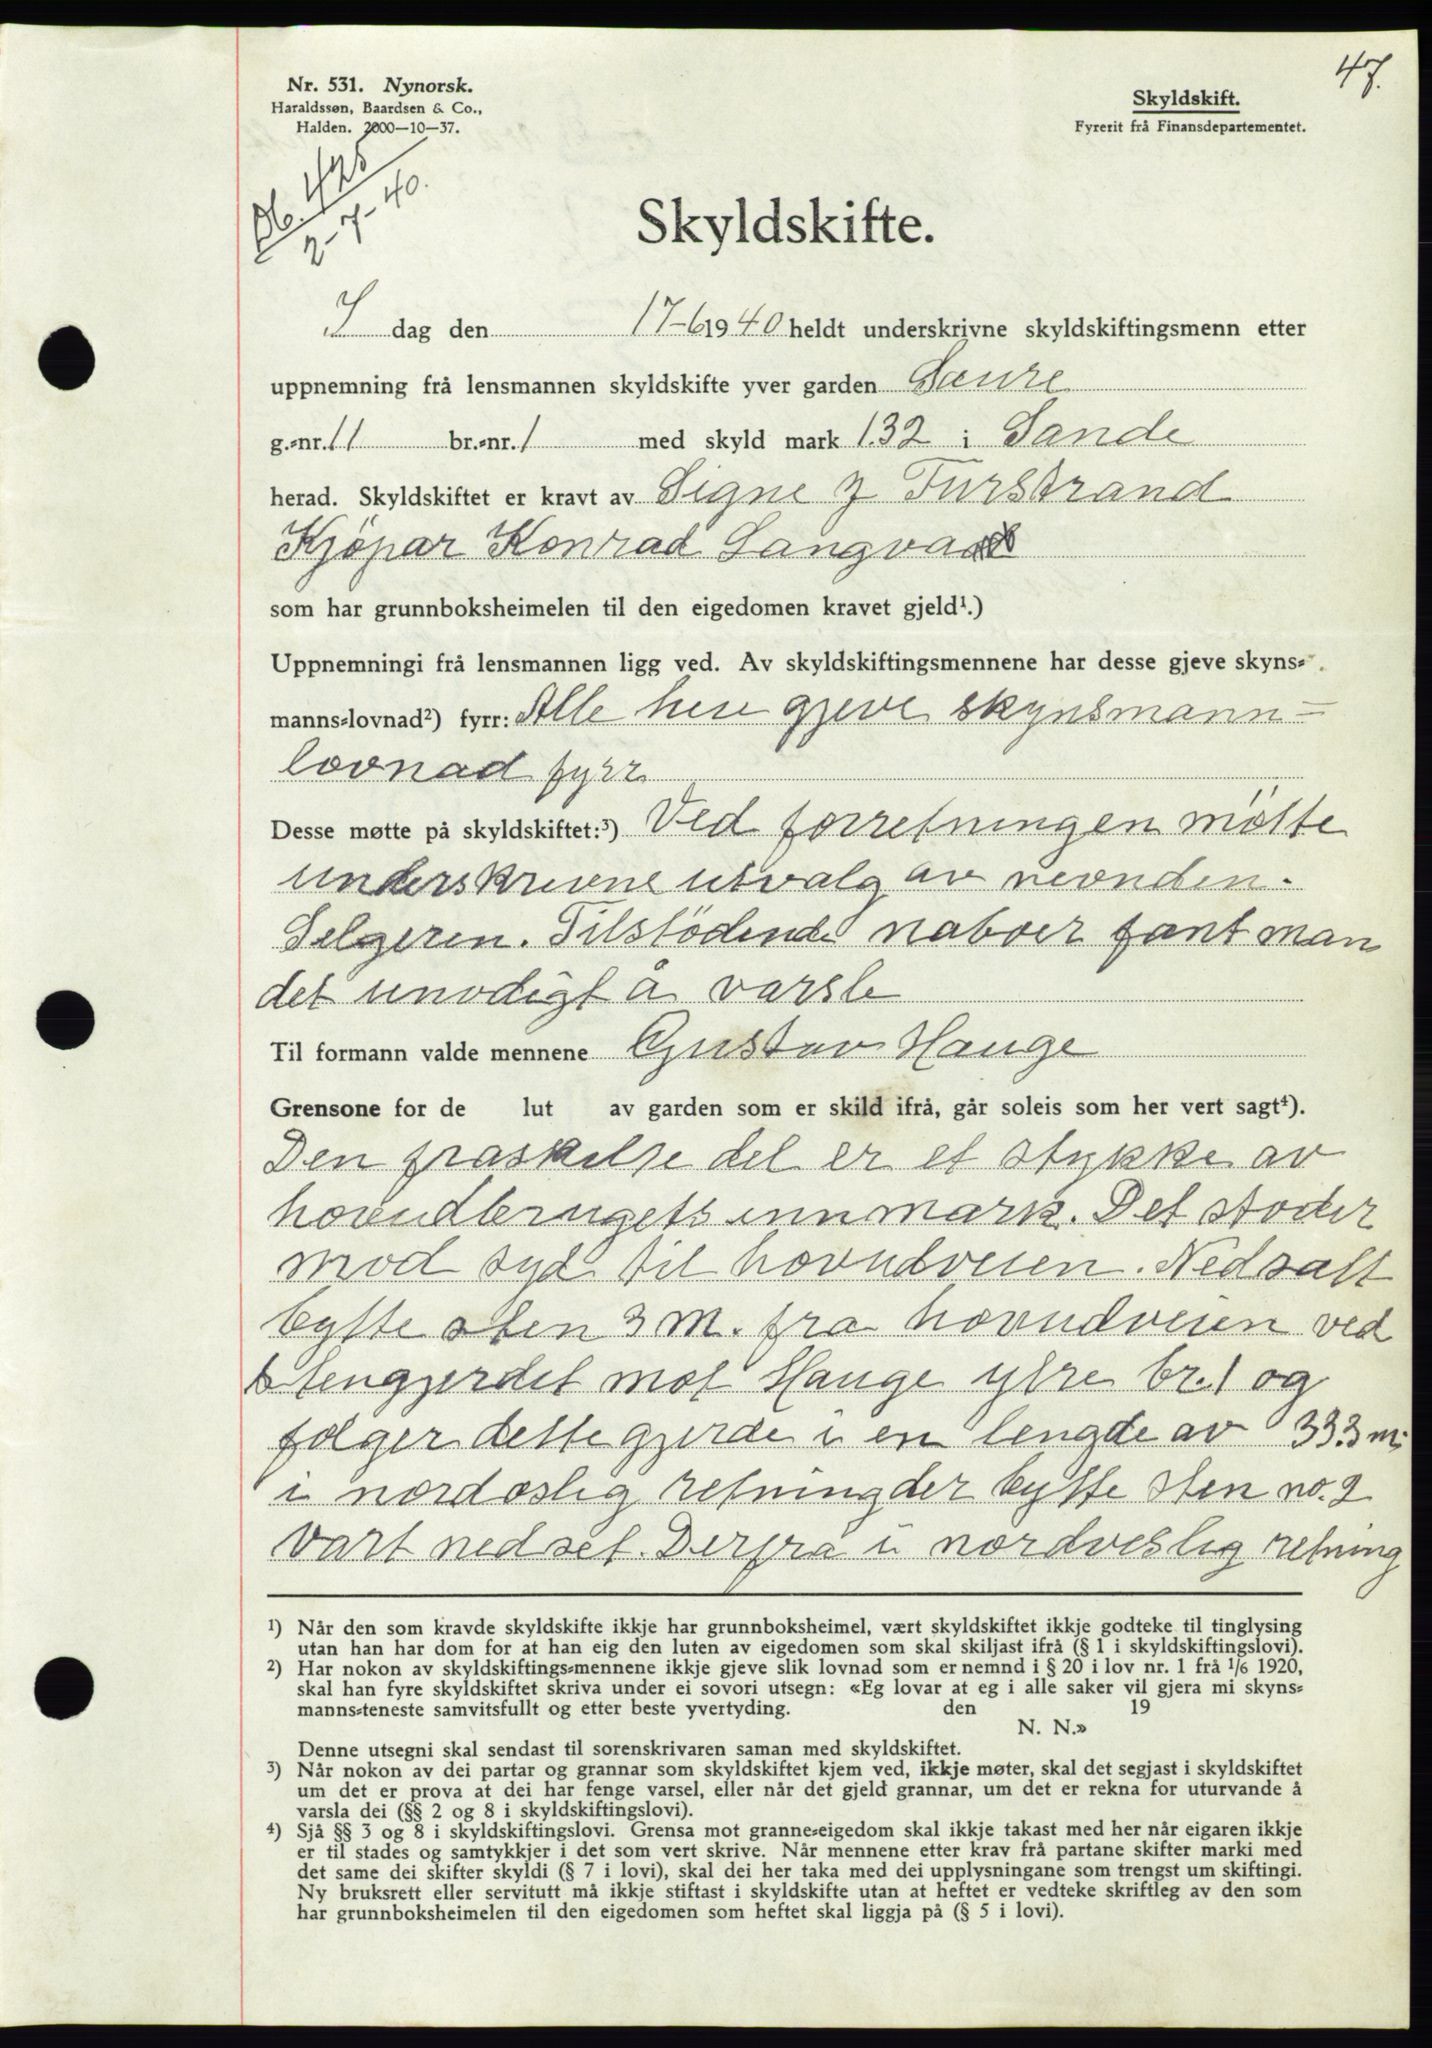 47.
Nr. 531. Nynorsk.
Haraldssøn, Baardsen & Co.,
Halden. 2000—10—37.
Skyldskift.
Fyrerit frå Finansdepartementet.
Db. 425
2-7-40.
Skyldskifte.
I dag den 17-6 1940 heldt underskrivne skyldskiftingsmenn etter
uppnemning frå lensmannen skyldskifte yver garden Saure
g.-nr. 11 br.-nr. 1 med skyld mark 1.32 i Sande
herad. Skyldskiftet er kravt av Signe J Furstrand
Kjöpar Konrad
som har grunnboksheimelen til den eigedomen kravet gjeld¹.)
Uppnemningi frå lensmannen ligg ved. Av skyldskiftingsmennene har desse gjeve skyns-
manns-lovnad²) fyrr: Alle have gjeve skynsmann=
lovnad fyrr
Desse møtte på skyldskiftet:³) Ved forretningen mötte
underskrevne utvalg av nevnden.
Selgeren. Tilstödende naboer fant man
det unodigt å varsle
Til formann valde mennene Gustav Hauge
Grensone for de lut av garden som er skild ifrå, går soleis som her vert sagt⁴).
Den fraskilte del er et stykke av
hovudbrugets innmark. Det stoder
mod syd til hovudveien. Nedsatt
bytte sten 3 m. fra hovudveien ved
stengjerdet mot Hauge ytre br. 1 og
følger dette gjerde i en lengde av 33.3 m.
i nordøslig retning der bytte sten no. 2
vart nedset. Derfra i nordveslig retning
¹) Når den som kravde skyldskifte ikkje har grunnboksheimel, vært skyldskiftet ikkje godteke til tinglysing
utan han har dom for at han eig den luten av eigedomen som skal skiljast ifrå (§ 1 i skyldskiftingslovi).
²) Har nokon av skyldskiftings-mennene ikkje gjeve slik lovnad som er nemnd i § 20 i lov nr. 1 frå 1/6 1920,
skal han fyre skyldskiftet skriva under ei sovori utsegn: «Eg lovar at eg i alle saker vil gjera mi skyns-
manns-teneste samvitsfullt og etter beste yvertyding. den 19
N. N.»
Denne utsegni skal sendast til sorenskrivaren saman med skyldskiftet.
³) Når nokon av dei partar og grannar som skyldskiftet kjem ved, ikkje møter, skal det segjast i skyldskiftet
um det er prova at dei har fenge varsel, eller når det gjeld grannar, um det er rekna for uturvande å
varsla dei (§§ 2 og 8 i skyldskiftingslovi).
⁴) Sjå §§ 3 og 8 i skyldskiftingslovi. Grensa mot granne-eigedom skal ikkje takast med her når eigaren ikkje
er til stades og samtykkjer i det som vert skrive. Når mennene etter krav frå partane skifter marki med
det same dei skifter skyldi (§ 7 i lovi), skal dei her taka med dei upplysningane som trengst um skiftingi.
Ny bruksrett eller servitutt må ikkje stiftast i skyldskifte utan at heftet er vedteke skriftleg av den som
har grunnboksheimelen til den eigedomen som heftet skal liggja på (§ 5 i lovi).